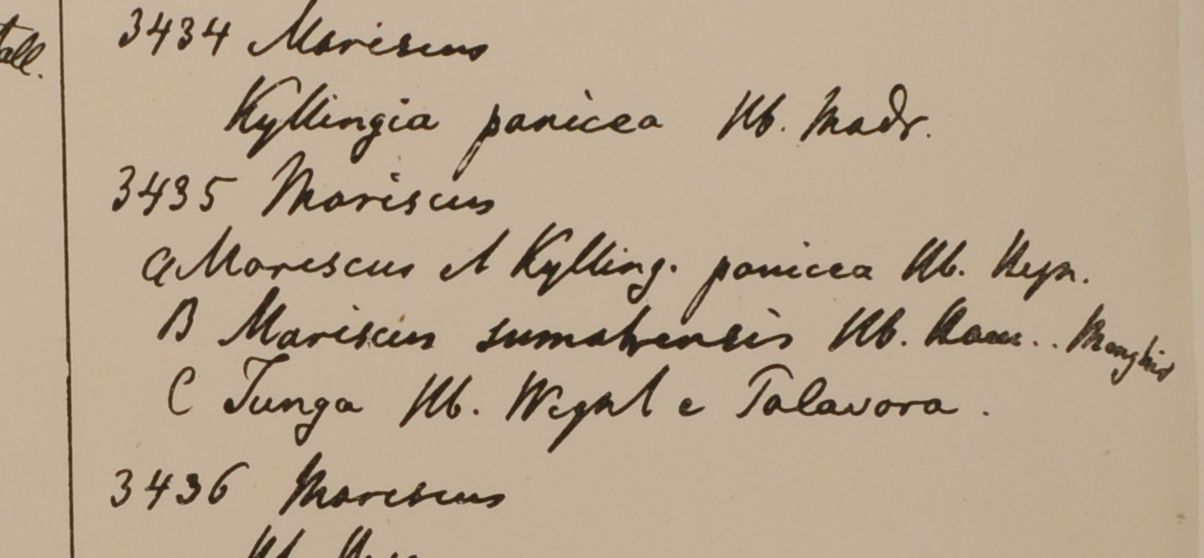 all.
3434 Mariscus
Kyllingia panicea Hb. Madr.
3435 Mariscus
a Mariscus et Kylling. panicea Hb. Heyn.
B Mariscus sumatrensis Hb. Ham.. Monghir
C Tunga Hb. Wight e Talavora.
3436 Mariscus
Hb.